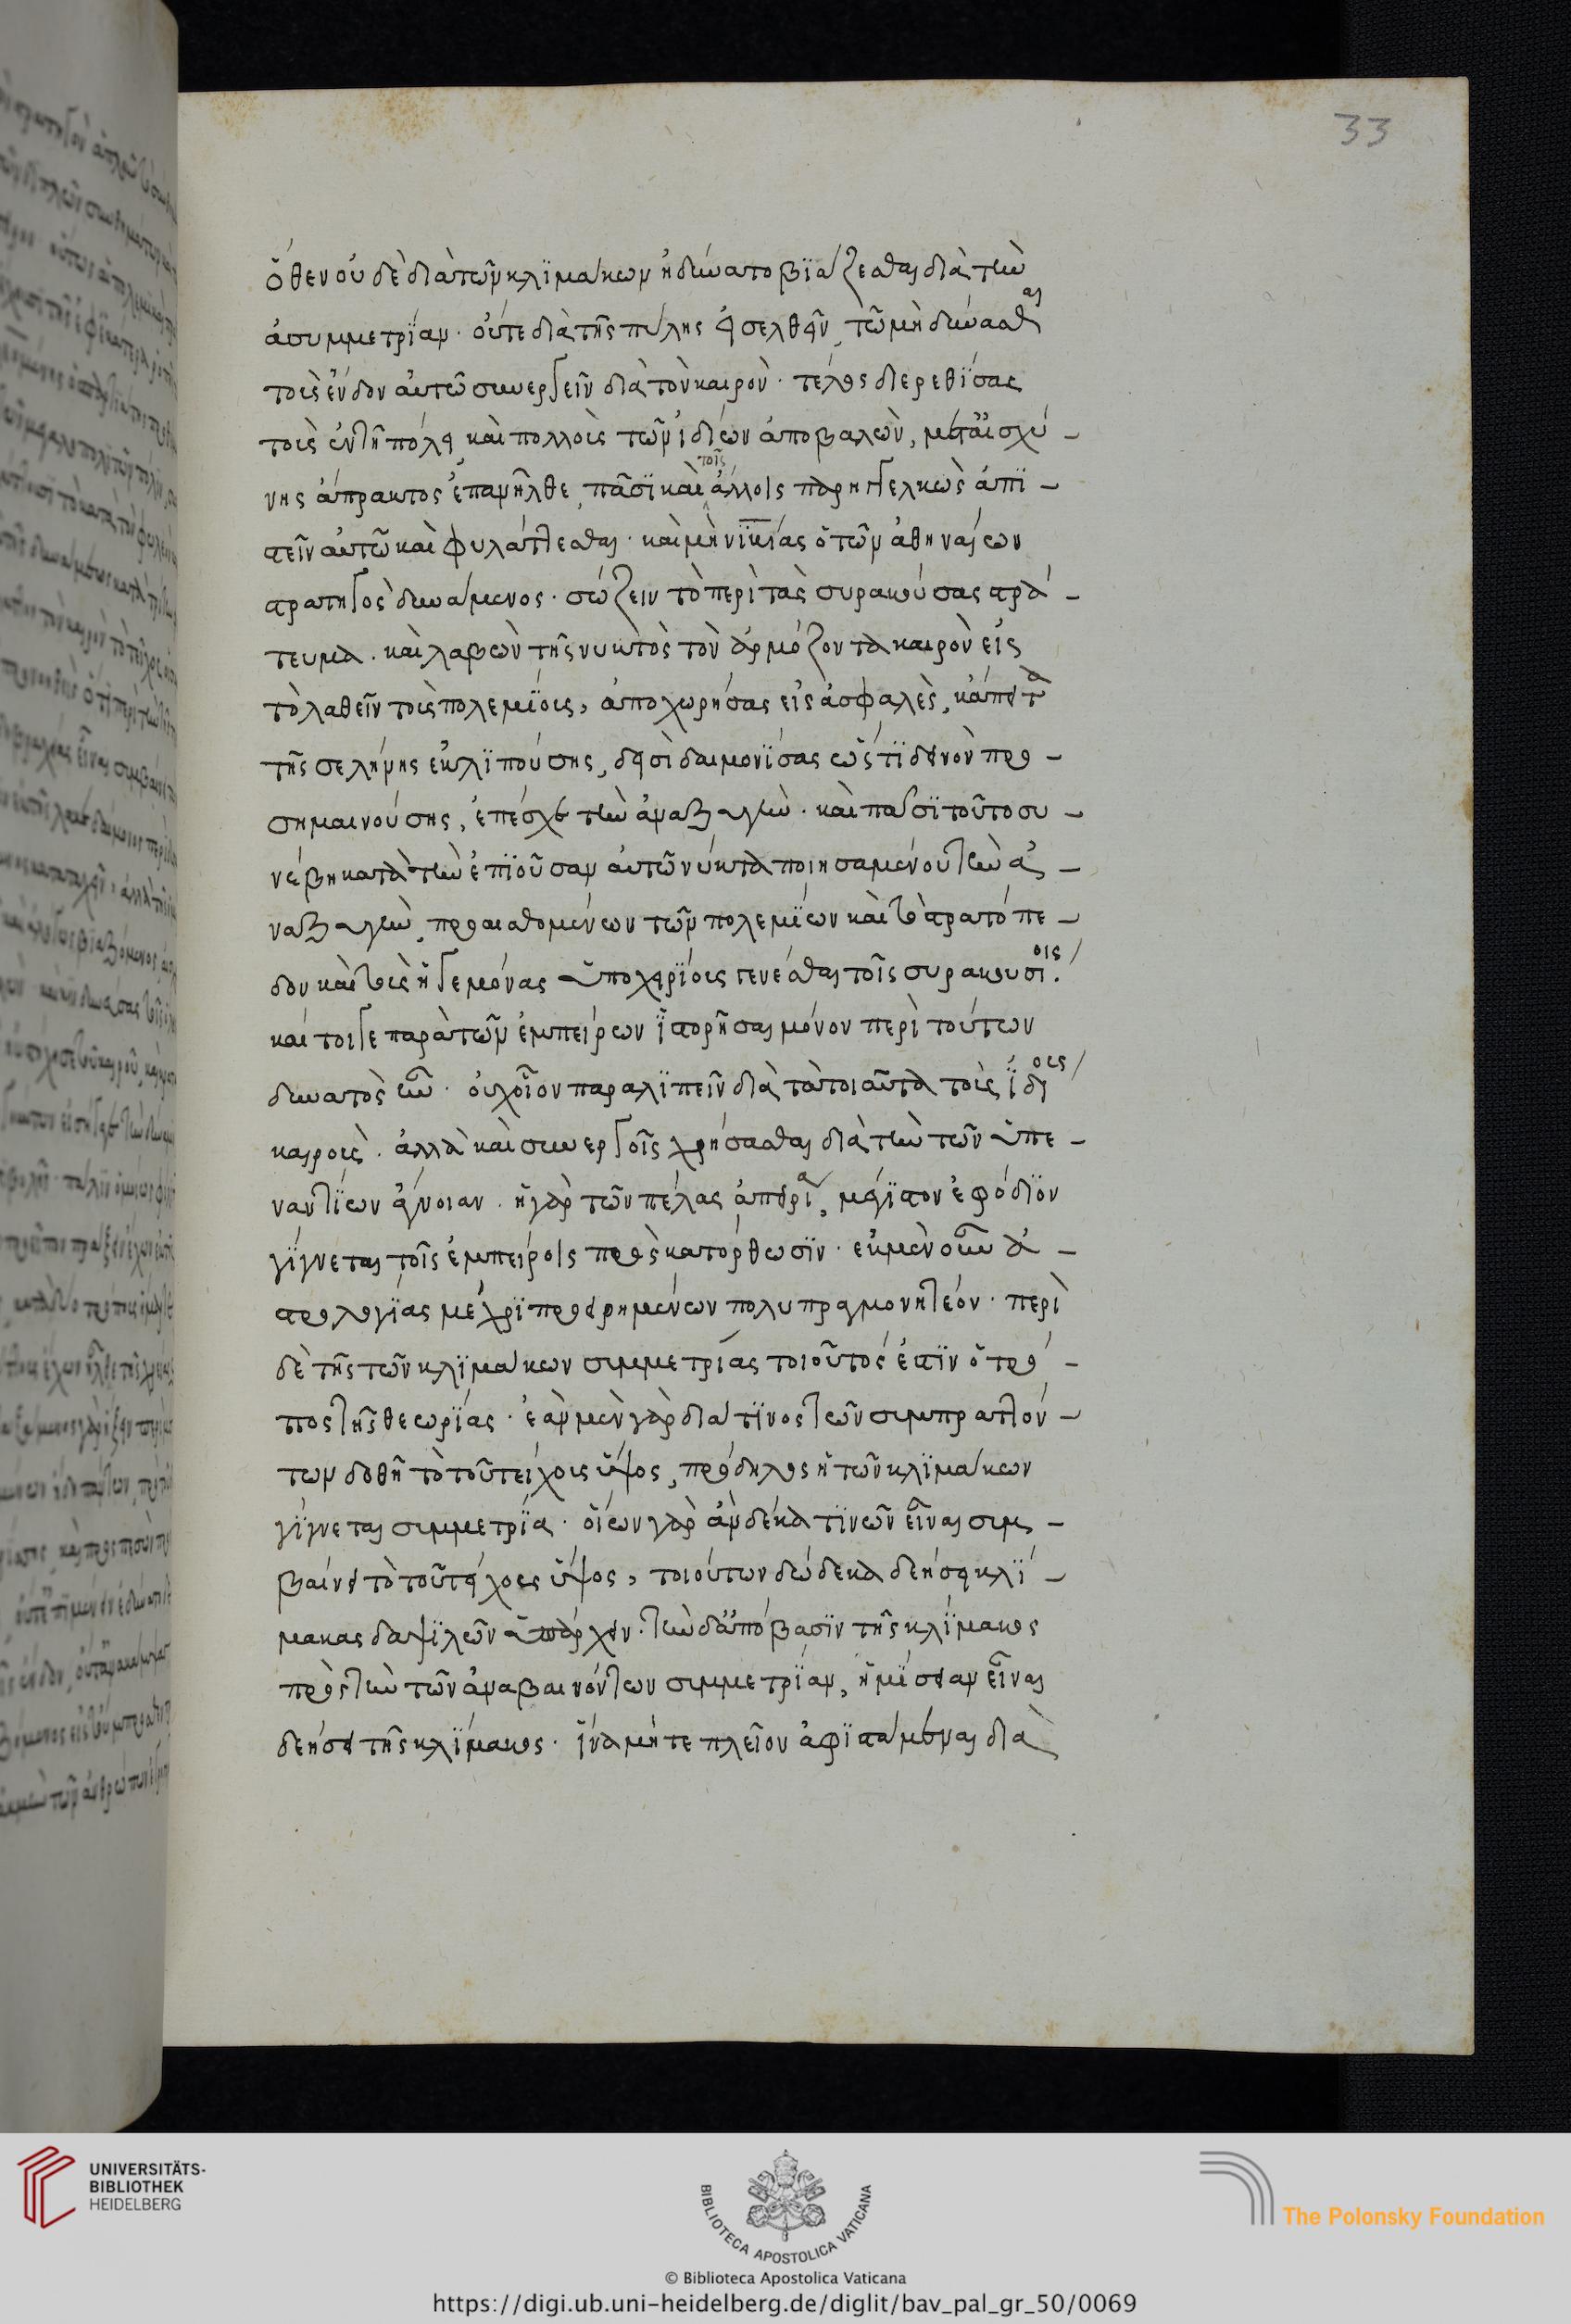 ὅθεν οὐδὲ διὰ τῶν κλϊμάκων ἠδύνατο βϊάζεσθαι διὰ τὴν
ἀσυμμετρίαν· οὔτε διὰ τῆς πύλης εἰσελθεῖν, τῶ μὴ δύνασθαι
τοὺς ἔνδον αὐτῶ συνεργεῖν διὰ τὸν καιρὸν· τέλος διερεθίσας
τοὺς ἐν τῆ πόλει καὶ πολλοὺς τῶν ἰδίων ἀποβαλὼν, μετ' αἰσχύ-
νης ἄπρακτος ἐπανῆλθε, πᾶσϊ καὶ τοῖς ἄλλοις παρηγγελκὼς ἀπϊ-
στεῖν αὐτῶ καὶ φυλάττεσθαι· καὶ μὴν νϊκίας ὁ τῶν ἀθηναίων
στρατηγὸς δυνάμενος· σώζειν τὸ περὶ τὰς συρακούσας στρά-
τευμα· καὶ λαβὼν τῆς νυκτὸς τὸν ἁρμόζοντα καιρὸν εἰς
τὸ λαθεῖν τοὺς πολεμίους, ἀποχωρήσας εἰς ἀσφαλὲς, κἄπειτα
τῆς σελήνης ἐκλϊπούσης, δεισϊδαιμονϊσας ὥς τϊ δεινὸν προ-
σημαινούσης, ἐπέσχε τὴν ἀναζυγὴν· καὶ παρὰ τοῦτο συ-
νέβη κατὰ τὴν ἐπϊοῦσαν αὐτῶν νύκτα ποιησαμένου τὴν ἀ-
ναζυγὴν, προαισθομένων τῶν πολεμίων καὶ τὸ στρατόπε-
δον καὶ τοὺς ἡγεμόνας ὑποχειρίους γενέσθαι τοῖς συρακουσίοις.
καί τοιγε παρὰ τῶν ἐμπείρων ἱστορῆσαι μόνον περὶ τούτων
δυνατὸς ὢν· οὐχ οἷον παραλϊπεῖν διὰ τὰ τοιαῦτα τοὺς ἰδίους
καιροὺς· ἀλλὰ καὶ συνεργοῖς χρήσασθαι διὰ τὴν τῶν ὑπε-
ναντίων ἄγνοιαν· ἡ γὰρ τῶν πέλας ἀπειρία, μέγϊστον ἐφόδϊον
γίγνεται τοῖς ἐμπείροις πρὸς κατόρθωσϊν· ἐκ μὲν οὖν ἀ-
στρολογίας μέχρϊ προειρημένων πολυπραγμονητέον· περὶ
δὲ τῆς τῶν κλϊμάκων συμμετρίας τοιοῦτός ἐστϊν ὁ τρό-
πος τῆς θεωρίας· ἐὰν μὲν γὰρ διά τϊνος τῶν συμπραττόν-
των δοθῆ τὸ τοῦ τείχους ὕψος, πρόδηλος ἡ τῶν κλϊμάκων
γίγνεται συμμετρία· οἵων γὰρ ἂν δέκα τϊνῶν εἶναι συμ-
βαίνει τὸ τοῦ τείχους ὕψος, τοιούτων δώδεκα δεήσει κλί-
μακας δαψϊλῶν ὑπάρχειν· τὴν δ' ἀπόβασϊν τῆς κλίμακος
πρὸς τὴν τῶν ἀναβαινόντων συμμετρίαν, ἡμίσειαν εἶναι
δεήσει τῆς κλίμακος· ἵνα μήτε πλεῖον ἀφϊστάμεναι διὰ
33
UNIVERSITÄTS-
BIBLIOTHEK
HEIDELBERG
BIBLIOTECA APOSTOLICA VATICANA
© Biblioteca Apostolica Vaticana
The Polonsky Foundation
https://digi.ub.uni-heidelberg.de/diglit/bav_pal_gr_50/0069